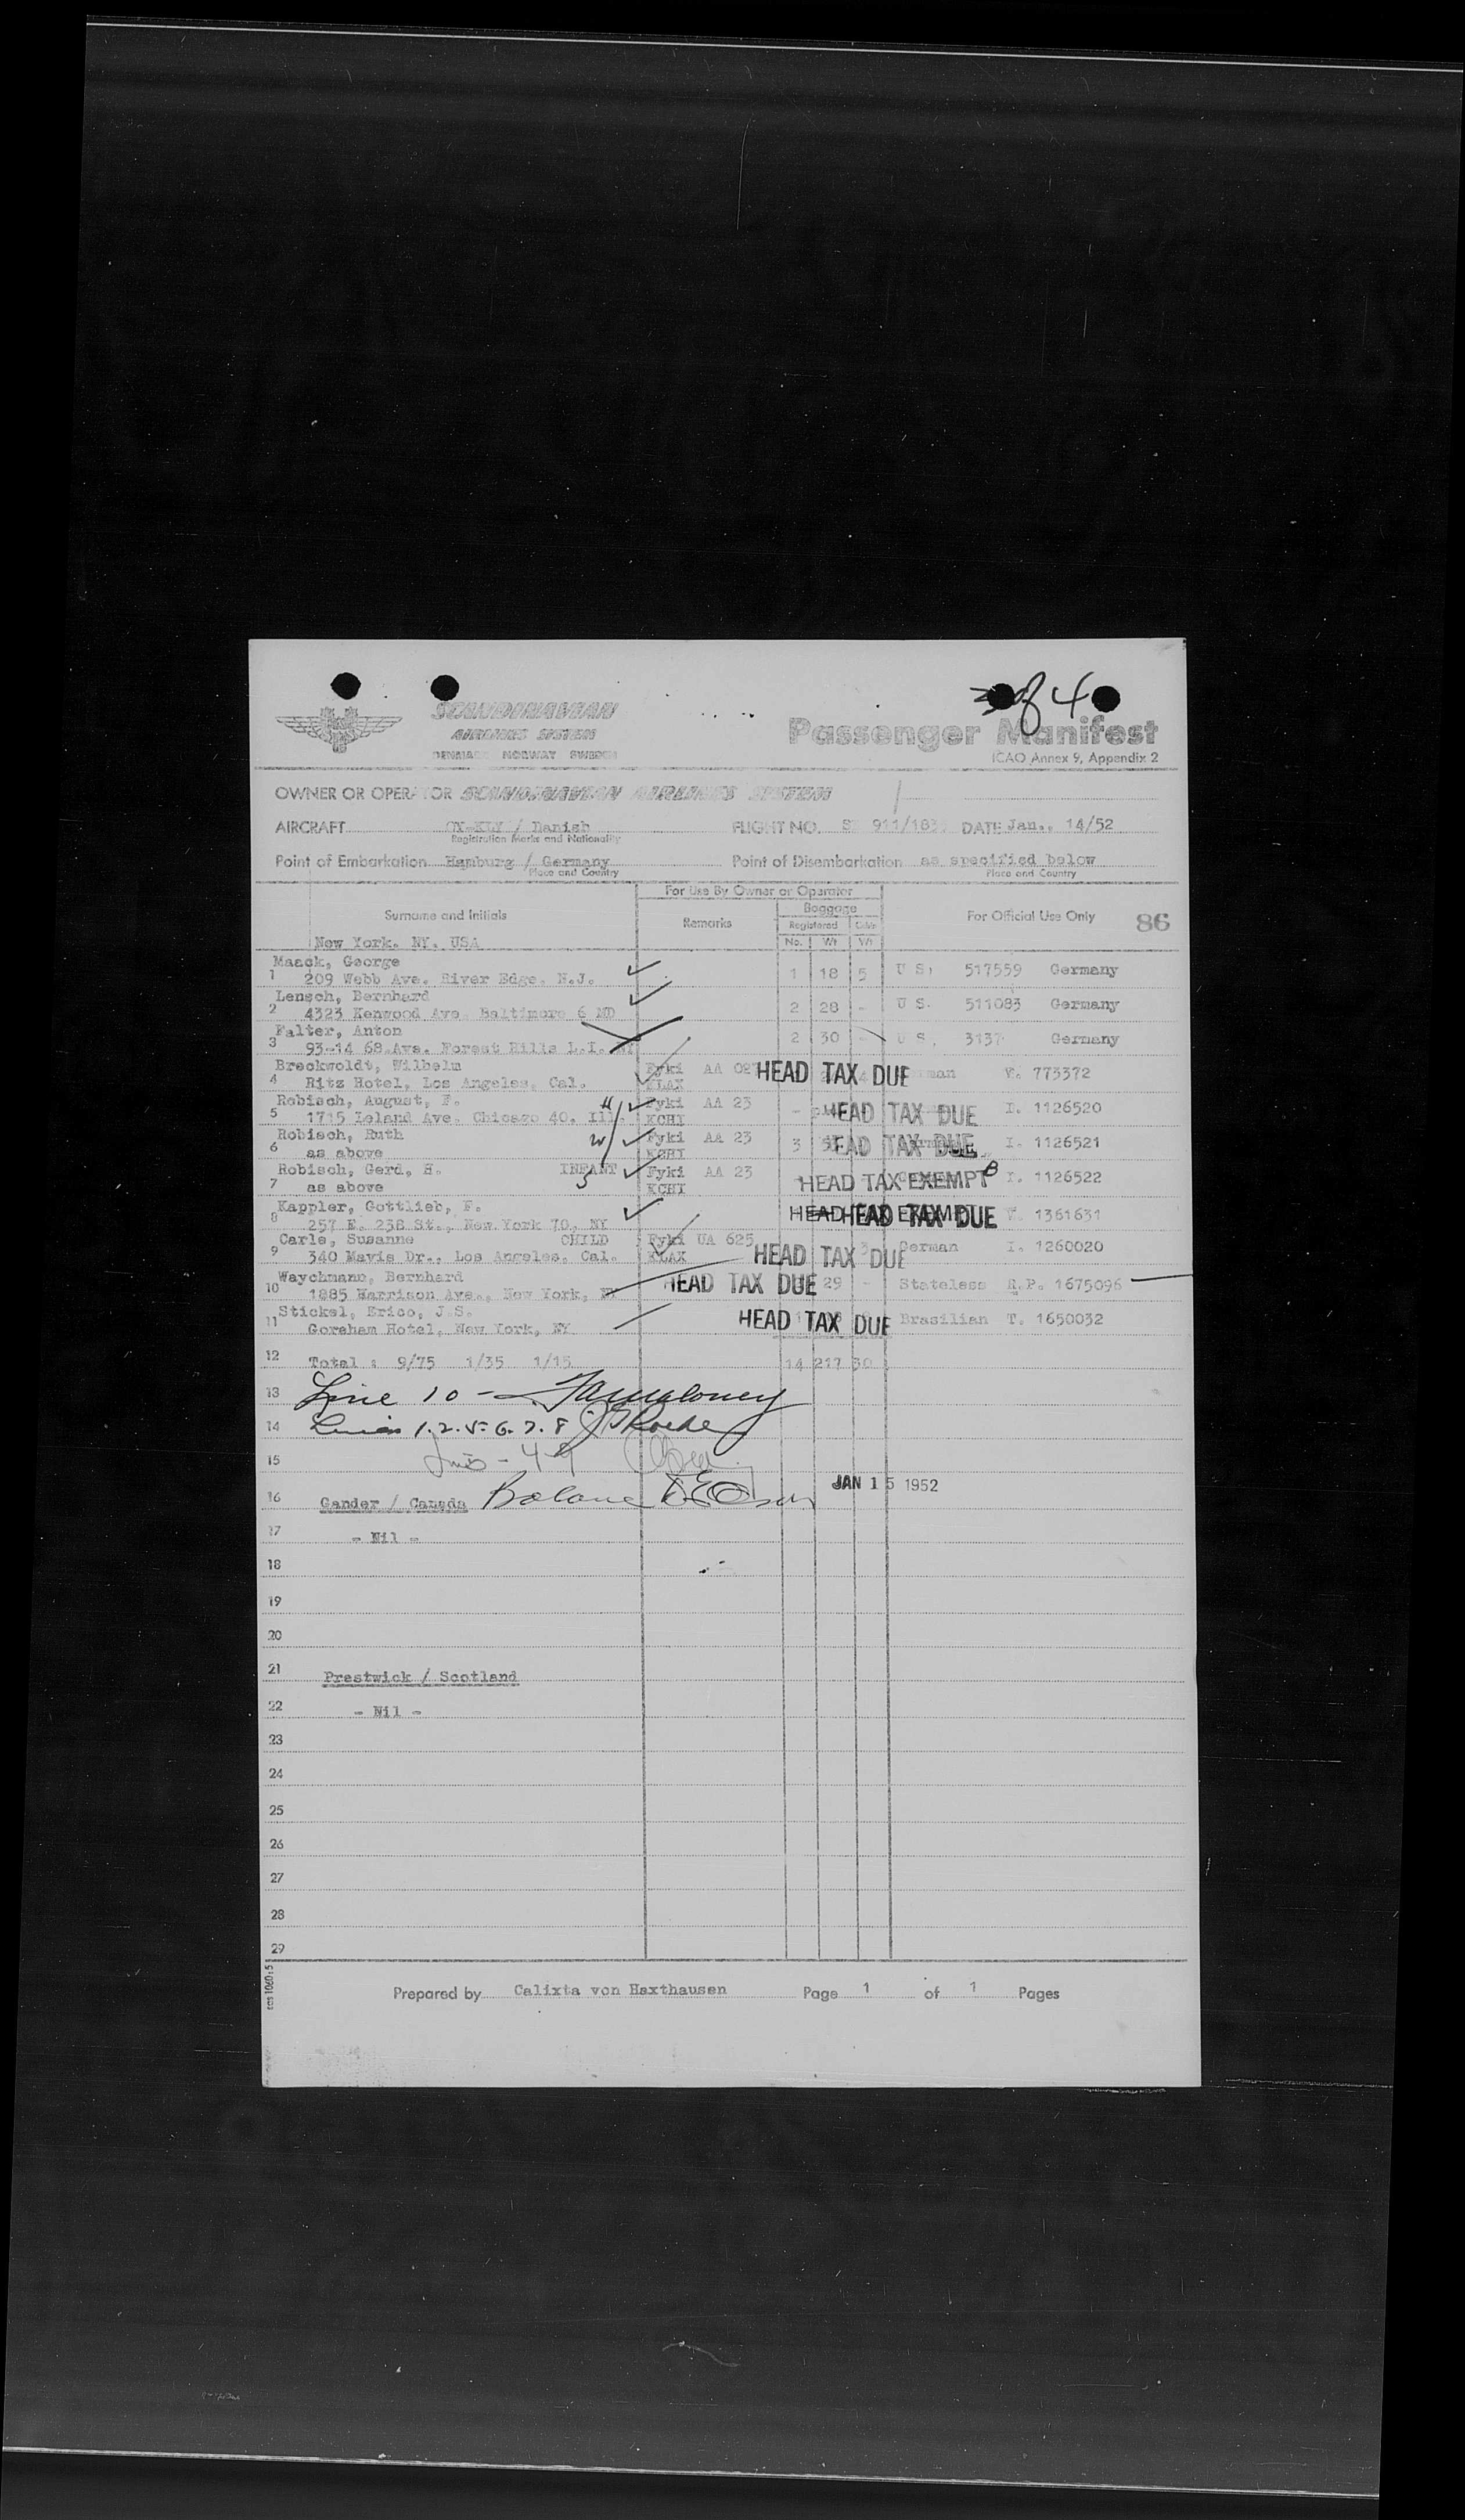 3 of 4
SCANDINAVIAN
AIRLINES SYSTEM
DENMARK NORWAY SWEDEN
Passenger Manifest
ICAO Annex 9, Appendix 2
OWNER OR OPERATOR SCANDINAVIAN AIRLINES SYSTEM
AIRCRAFT / Danish FLIGHT NO. 911/183 DATE Jan., 14/52
Registration Marks and Nationality
Point of Embarkation Hamburg / Germany Point of Disembarkation as specified below
Place and Country Place and Country
For Use By Owner or Operator
Surname and Initials Remarks Baggage For Official Use Only 86
Registered Cabin
No. Wt Wt
New York. NY. USA
Maack, George
1 209 Webb Ave. River Edge, N.J. 1 18 5 U S. 517559 Germany
Lensch, Bernhard
2 4323 Kenwood Ave. Baltimore 6 MD 2 28 - U S. 511083 Germany
Falter, Anton
3 93-14 68.Ave. Forest Hills L.I. NY 2 30 - U S. 3137 Germany
Breckwoldt, Wilhelm Fyki AA HEAD TAX DUE
4 Ritz Hotel, Los Angeles, Cal. KLAX 773372
Robisch, August, F. H Fyki AA 23 HEAD TAX DUE
5 1715 Leland Ave. Chicago 40. Ill. KCHI I. 1126520
Robisch, Ruth W Fyki AA 23 HEAD TAX DUE
6 as above KCHI 3 I. 1126521
Robisch, Gerd, H. INFANT Fyki AA 23
7 as above KCHI HEAD TAX EXEMPT I. 1126522
Kappler, Gottlieb, F. HEAD TAX EXEMPT HEAD TAX DUE
8 257 E. 238 St., New York 70, NY 1361631
Carle, Susanne CHILD Fyki UA 625
9 340 Mavis Dr., Los Angeles, Cal. KLAX HEAD TAX DUE 3 German I. 1260020
Waychmann, Bernhard
10 1885 Harrison Ave., New York, NY HEAD TAX DUE 29 - Stateless R.P. 1675096
Stickel, Erico, J.S.
11 Goreham Hotel, New York, NY HEAD TAX DUE Brasilian T. 1650032
12 Total : 9/75 1/35 1/15 14 217 30
13 Line 10 -
14 Lines 1.2.5.6.7.8
15
16 Gander / Canada Balance JAN 15 1952
17 - Nil -
18
19
20
21 Prestwick / Scotland
22 - Nil -
23
24
25
26
27
28
29
Prepared by Calixta von Haxthausen Page 1 of 1 Pages